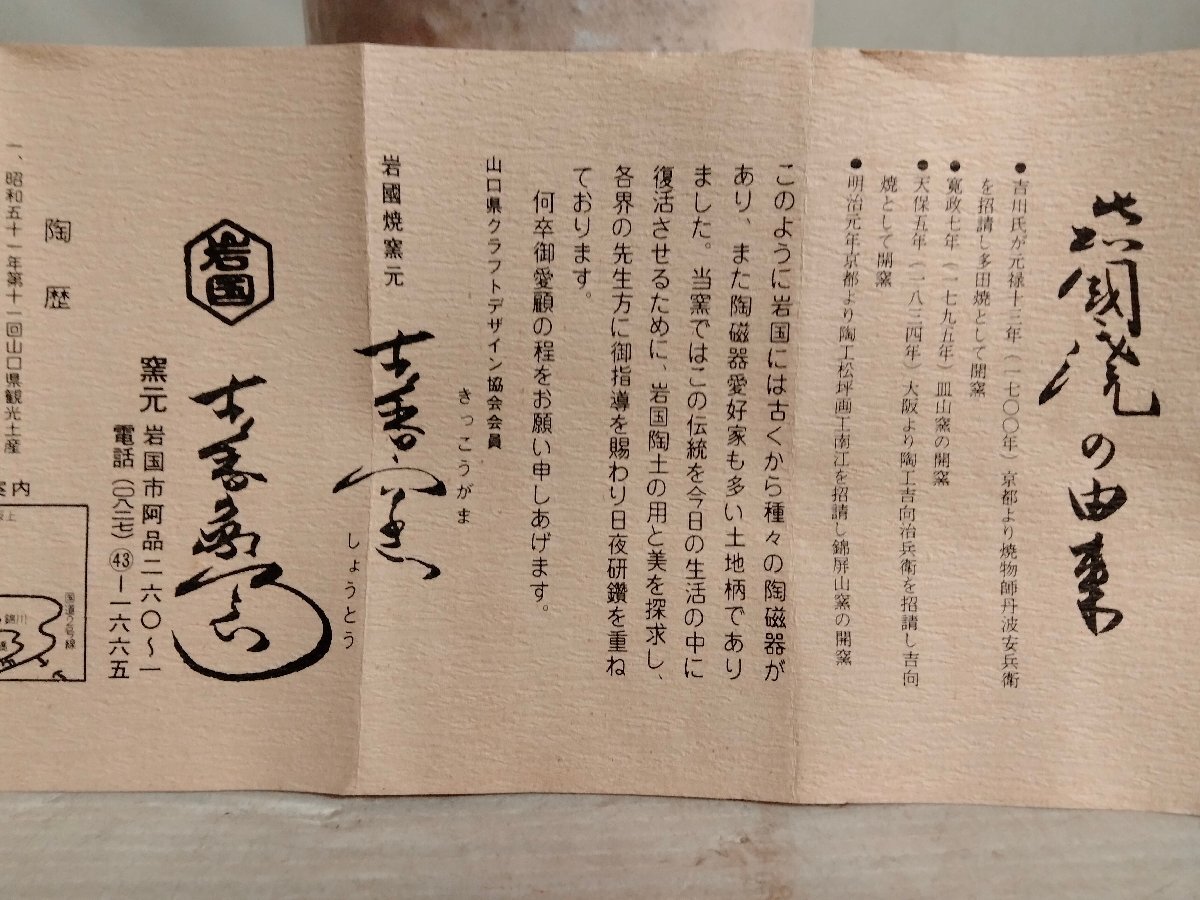 岩國焼の由来
●吉川氏が元禄十三年(一七〇〇年)京都より焼物師丹波安兵衛
を招請し多田焼として開窯
●寛政七年(一七九五年)皿山窯の開窯
●天保五年(一八三四年)大阪より陶工吉向治兵衛を招請し吉向
焼として開窯
●明治元年京都より陶工松坪画工南江を招請し錦屏山窯の開窯
このように岩国には古くから種々の陶磁器が
あり、また陶磁器愛好家も多い土地柄であり
ました。当窯ではこの伝統を今日の生活の中に
復活させるために、岩国陶土の用と美を探求し、
各界の先生方に御指導を賜わり日夜研鑽を重ね
ております。
何卒御愛顧の程をお願い申しあげます。
山口県クラフトデザイン協会会員
きっこうがま
岩國焼窯元
しょうとう
岩国
窯元 岩国市阿品二六〇〜一
電話(〇八二七)㊸ー一六六五
陶歴
一、昭和五十一年第十一回山口県観光土産
案内
国道2号線
錦川